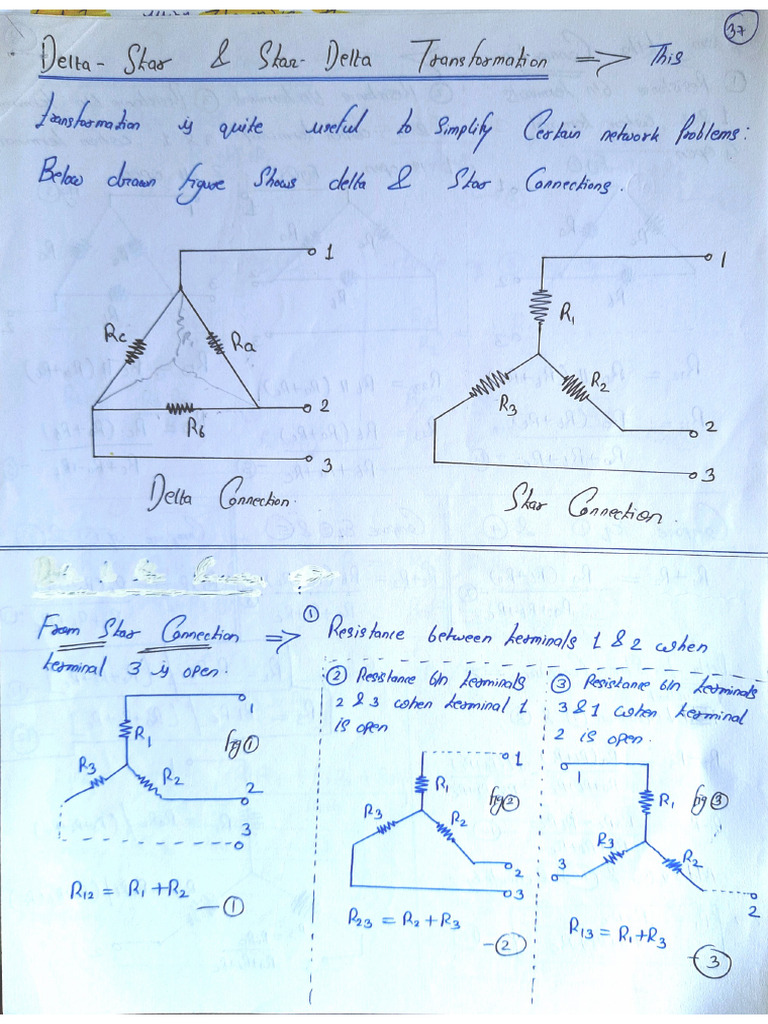 37
Delta-Star & Star-Delta Transformation => This
transformation is quite useful to simplify Certain network Problems:
Below drawn figure Shows delta & Star Connections.
1
Rc
Ra
2
Rb
3
Delta Connection.
1
R1
R2
R3
2
3
Star Connection.
From Star Connection => ① Resistance between terminals 1 & 2 when
terminal 3 is open.
1
R1
fig ①
R3
R2
2
3
R12 = R1 + R2 - ①
② Resistance b/n terminals
2 & 3 when terminal 1
is open
1
R1
fig ②
R3
R2
2
3
R23 = R2 + R3
- ②
③ Resistance b/n terminals
3 & 1 when terminal
2 is open.
1
R1
fig ③
R3
R2
3
2
R13 = R1 + R3
- ③